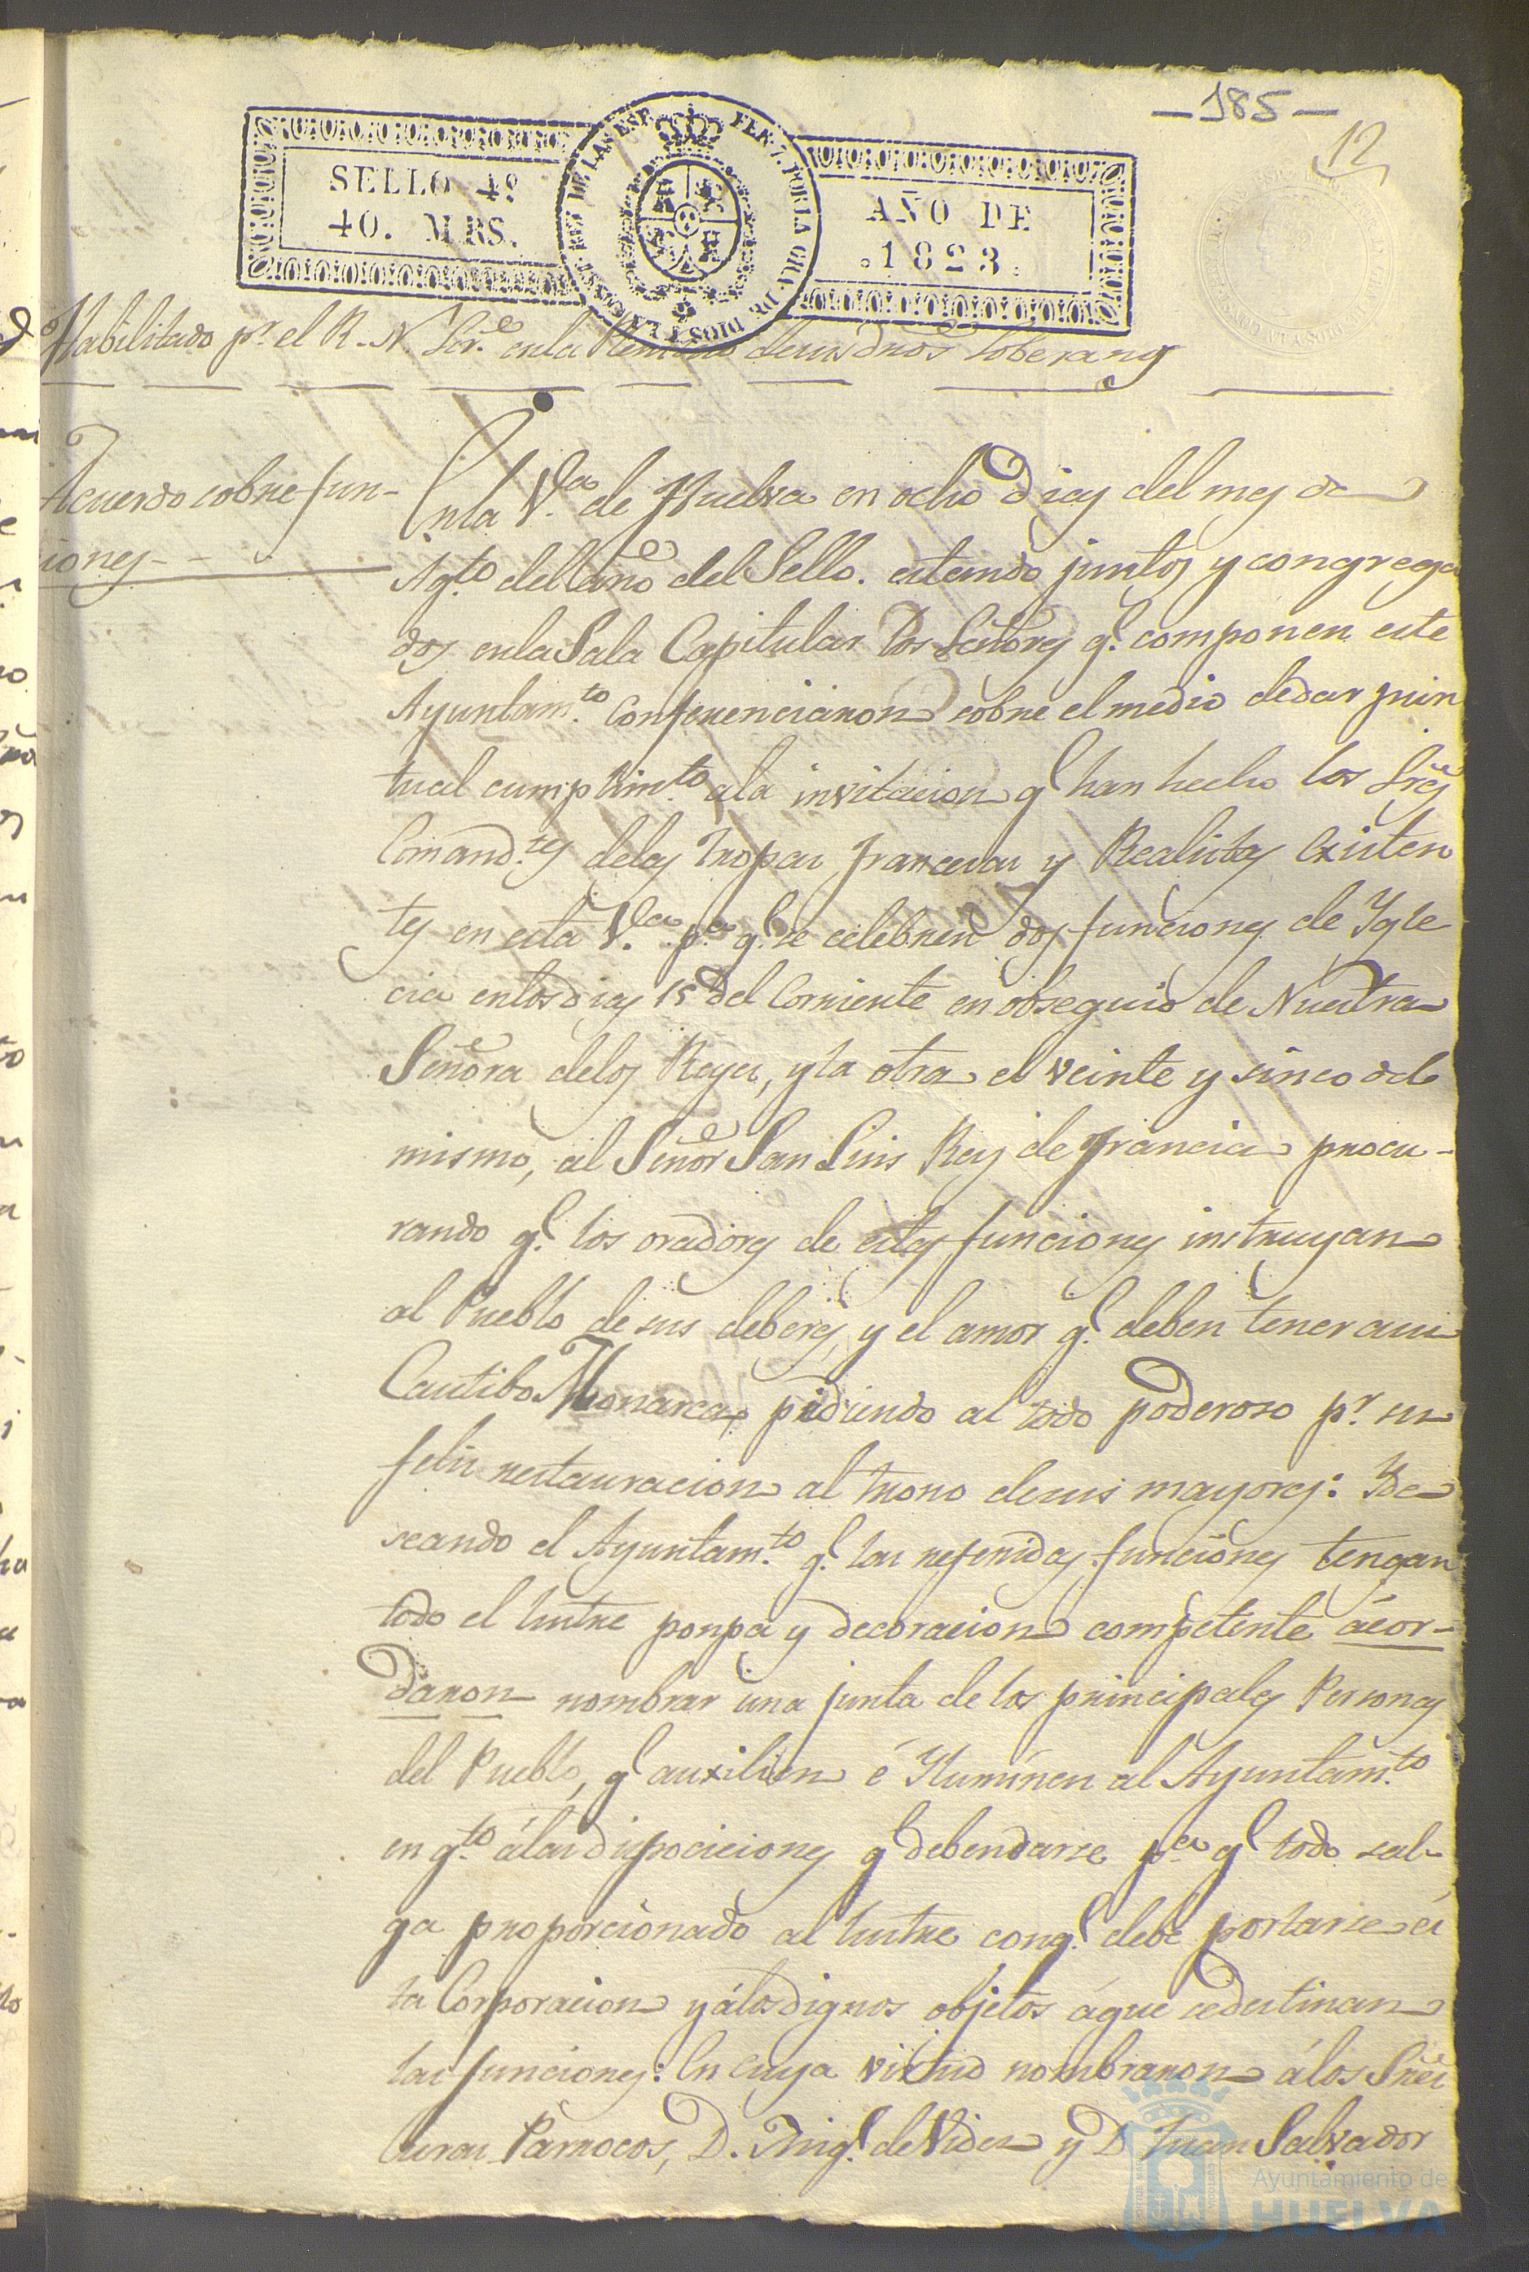 —185—
12
SELLO 4º
40. MRS.
FER. 7. POR LA GRA. DE DIOS Y LA CONST. REY DE LAS ESP.
AÑO DE
1823.
Habilitado pr. el R. N. Sr. en la Reunion de sus dros Soberanos
Acuerdo sobre fun-
ciones
En la Va. de Huelva en ocho dias del mes de
Agto. del año del Sello. estando juntos y congrega
dos en la Sala Capitular los Señores q. componen este
Ayuntamto. Conferenciaron sobre el medio de dar pun
tual cumplimto. a la invitacion q. han hecho los Sres
Comandtes. de las tropas francesas y Realistas existen
tes en esta Va. pa. q. se celebren dos funciones de Ygle
cia en los dias 15 del Corriente en obsequio de Nuestra
Señora de los Reyes, y la otra el veinte y sinco del
mismo, al Señor San Luis Rey de Francia procu-
rando q. los oradores de estas funciones instruyan
al Pueblo de sus deberes, y el amor q. deben tener a su
Cautibo Monarca, pidiendo al todo poderoso pr. su
feliz restauracion al trono de sus mayores: Y de
seando el Ayuntamto. q. las referidas funciones tengan
todo el lustre ponpa y decoracion competente ácor-
daron nombrar una junta de los principales Personas
del Pueblo, q. auxilien é Yluminen al Ayuntamto.
en qto. á las dispociciones q. deben darse pa. q. todo sal-
ga proporcionado al lustre con q. debe portarse es
ta Corporacion y á los dignos objetos á que se destinan
las funciones: En cuya virtud nombraron á los Sres
Curas Parrocos, D. Migl. de Vides y D. Juan Salvador
Ayuntamiento de
HUELVA